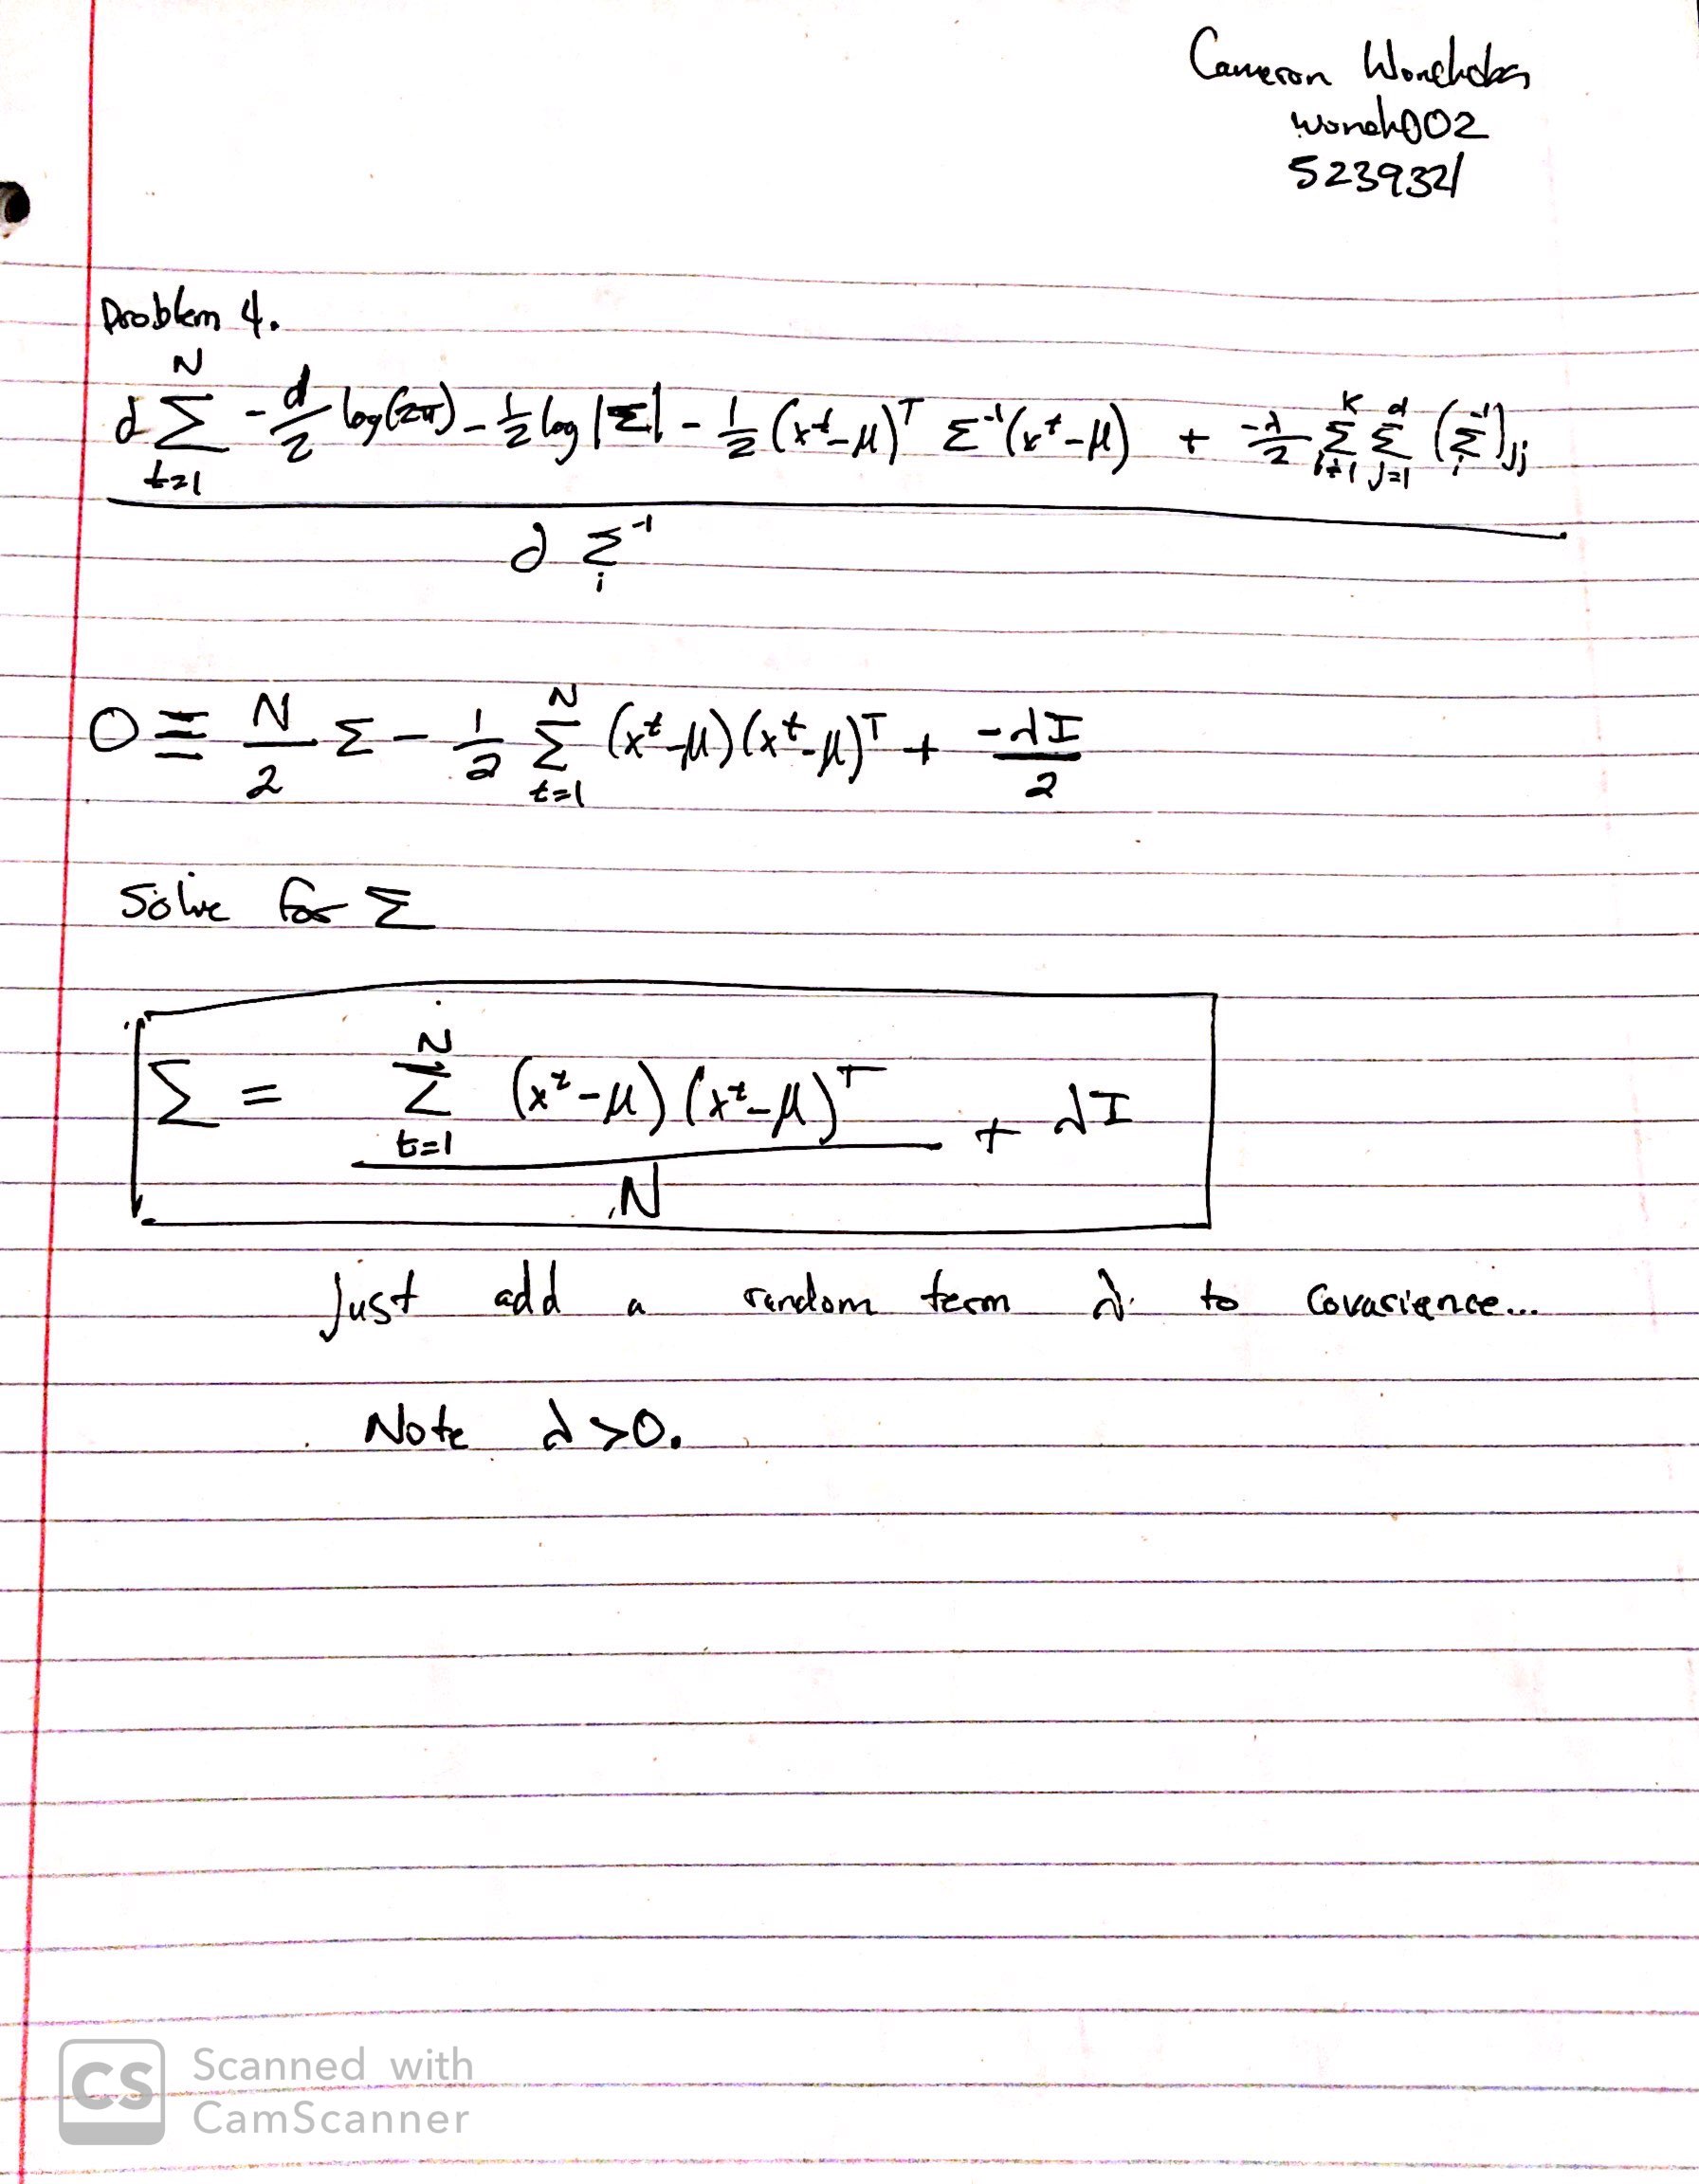 Cameron
wonch002
5239321
Problem 4.
∂ Σ_{t=1}^{N} -d/2 log(2π) - 1/2 log|Σ| - 1/2 (x^t-μ)^T Σ^{-1} (x^t-μ) + -λ/2 Σ_{i=1}^{K} Σ_{j=1}^{d} (Σ_i^{-1})_{jj}
∂ Σ_i^{-1}
0 ≡ N/2 Σ - 1/2 Σ_{t=1}^{N} (x^t-μ)(x^t-μ)^T + -λI/2
Solve for Σ
Σ = Σ_{t=1}^{N} (x^t-μ)(x^t-μ)^T / N + λI
Just add a random term λ to covarience...
Note λ>0.
CS Scanned with
CamScanner